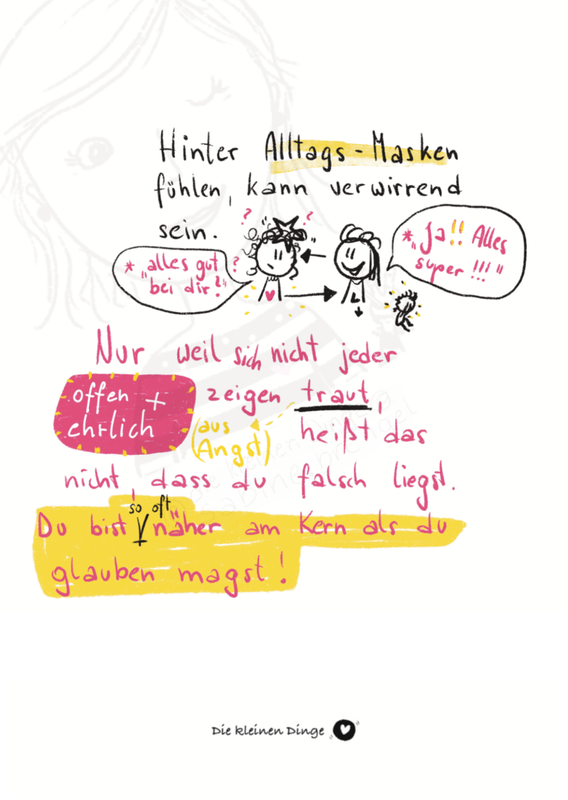 Hinter Alltags-Masken
fühlen, kann verwirrend
sein.
? ?
*„alles gut ?
bei dir?"
*„Ja!! Alles
super !!!"
Nur weil sich nicht jeder
offen +
ehrlich
zeigen traut,
(aus
Angst)
heißt das
nicht, dass du falsch liegst.
so oft
Du bist näher am Kern als du
glauben magst!
Die kleinen Dinge